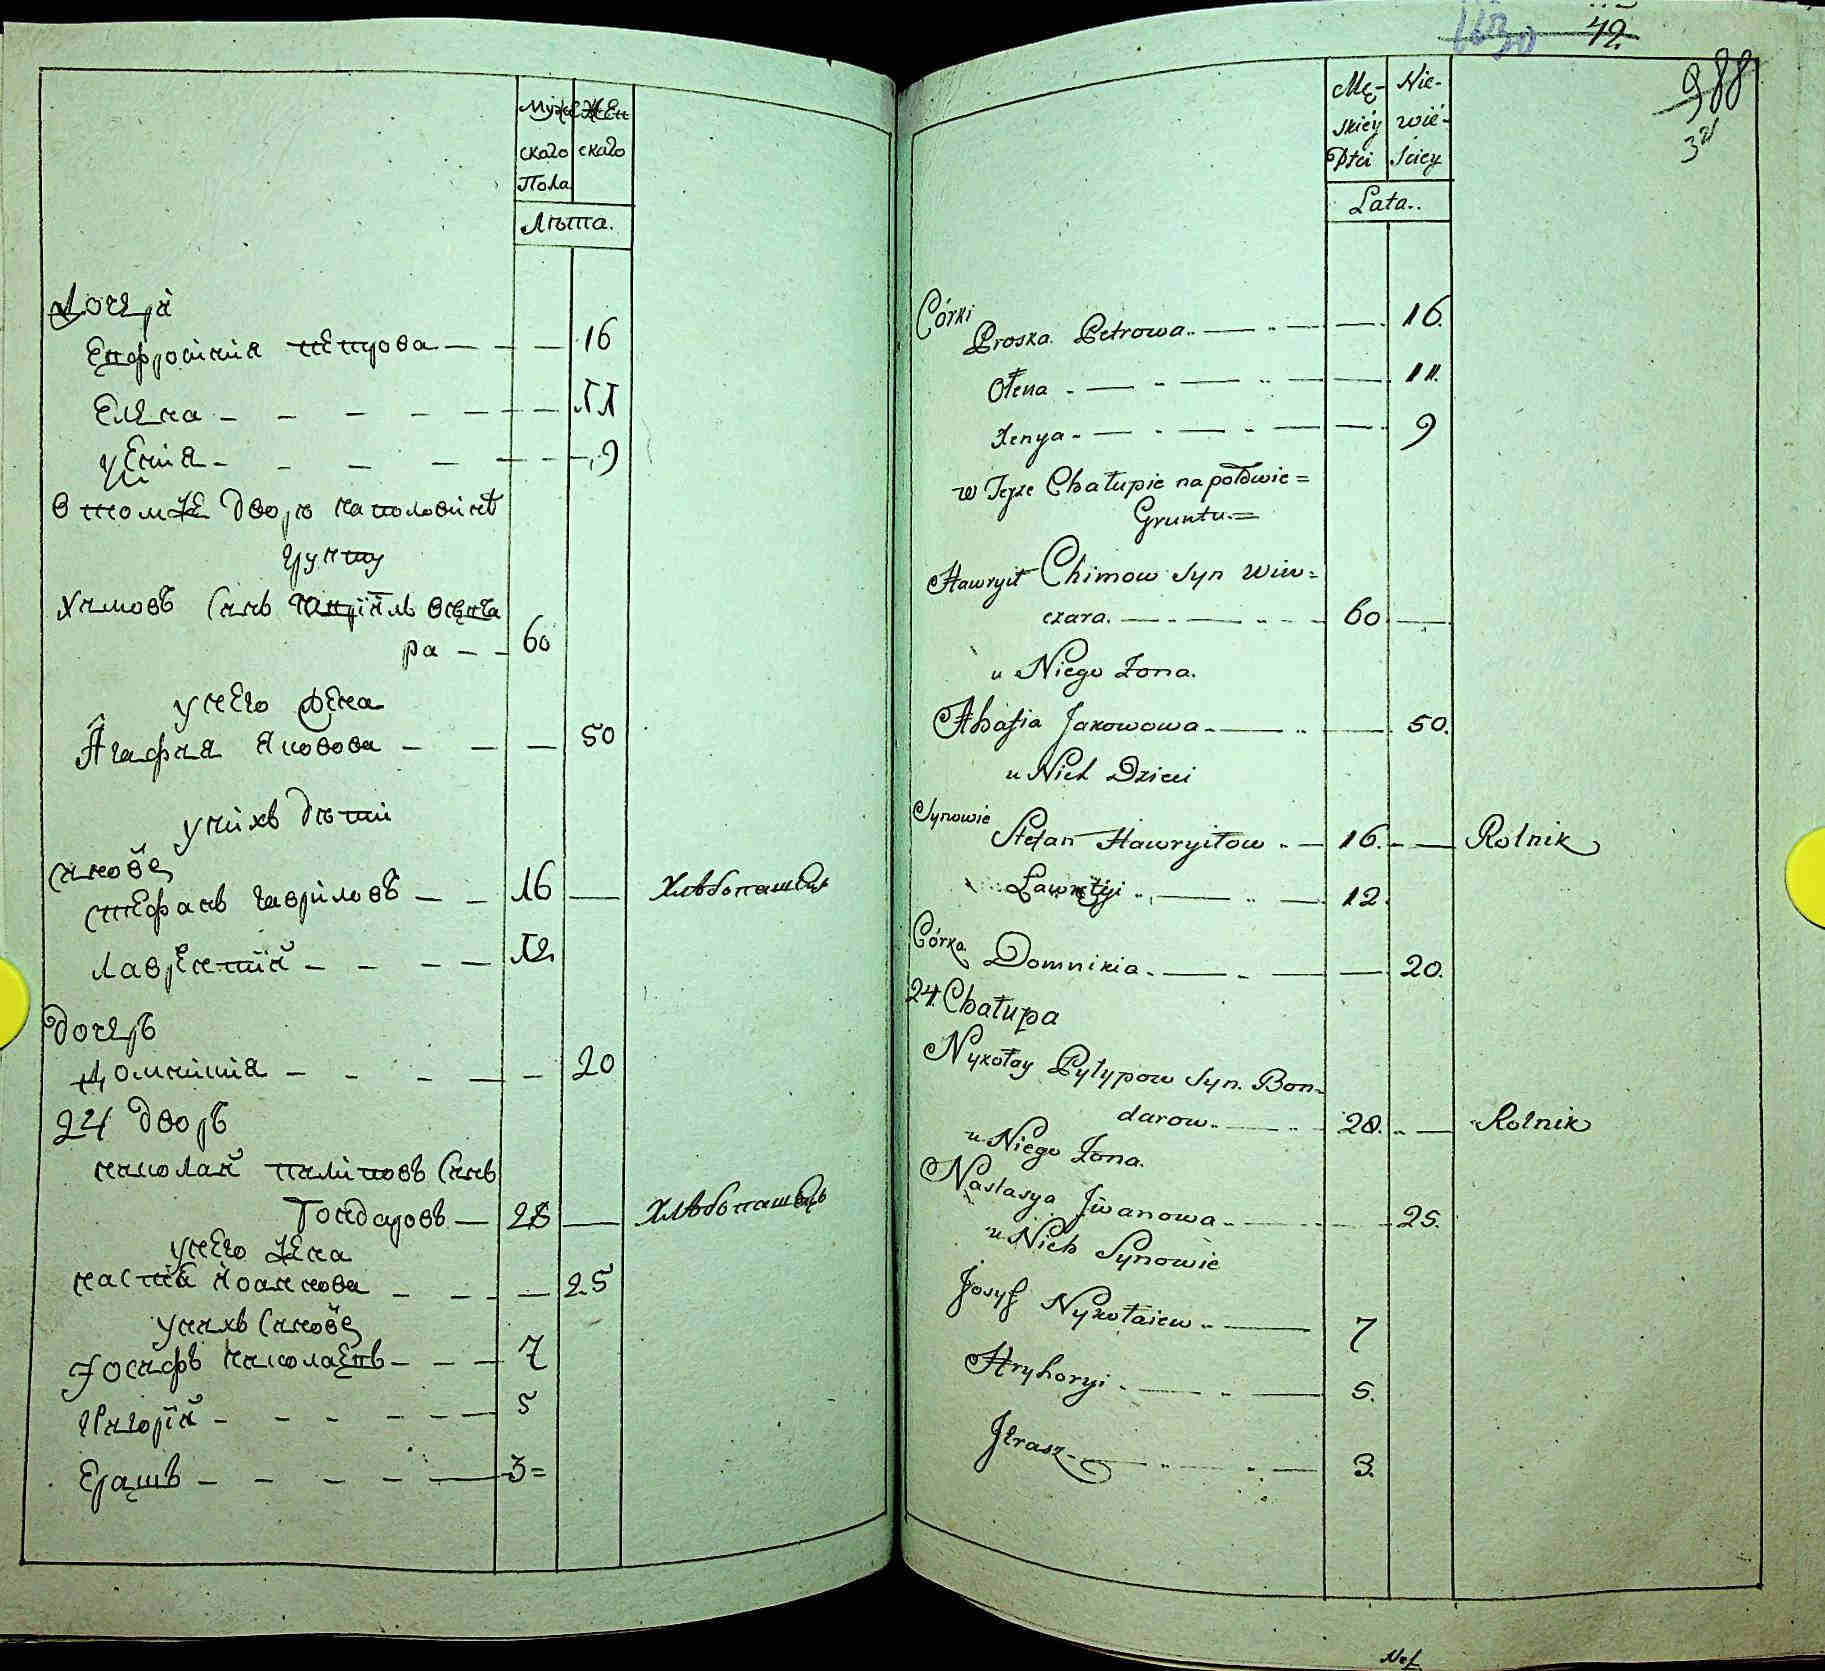 Муже Жен
скаго скаго
Пола
Лѣта.
Дочерѝ
Епфросинія петрова — — — 16
Елена — — — — — — 11
уЕнія — — — — — — 9
в томже дворѣ наполовинѣ
грунту
Химовъ Синъ Гавріилъ Вевча
ра — — 60
унего жена
Агафія Яковова — — — 50
унихъ дѣти
синове
Стефанъ гавриловъ — — 16 — Хлѣбопашецъ
Лаврентій — — — — 12
дочерь
Домникія — — — — — 20
24 дворъ
николай пилиповъ Синъ
Бондаровъ — 28 — Хлѣбопашецъ
унего жена
настія Иоаннова — — — — 25
унихъ синове
Иосифъ николаевъ — — — 7
Григорій — — — — — — 5
Ерашъ — — — — — 3=
42
988
Mę- Nie-
skiéy wié-
Płci ściey
Lata..
Córki
Proska Petrowa.. — .. — — 16.
Ołena - — .. — .. — — 11.
Xenya - — .. — .. — — 9
w Teyze Chałupie na połowie=
Gruntu.=
Hawrył Chimow Syn Wiw=
czara. — .. — .. — 60 —
u Niego Żona.
Ahafia Jakowowa. — .. — 50.
u Nich Dzieci
Synowie
Stefan Hawryiłow .. — 16. — Rolnik
Ławrętyi .. — .. — 12.
Córka Domnikia. — .. — — 20.
24. Chałupa
Nykołay Pyłypow Syn. Bon-
darow.. — .. — 28. .. — Rolnik
u Niego Żona.
Nastasya Jwanowa .. — .. — 25.
u Nich Synowie
Josyf Nykołaiew .. — 7
Hryhoryi .. — .. — 5.
Jerasz.. — .. — 3.